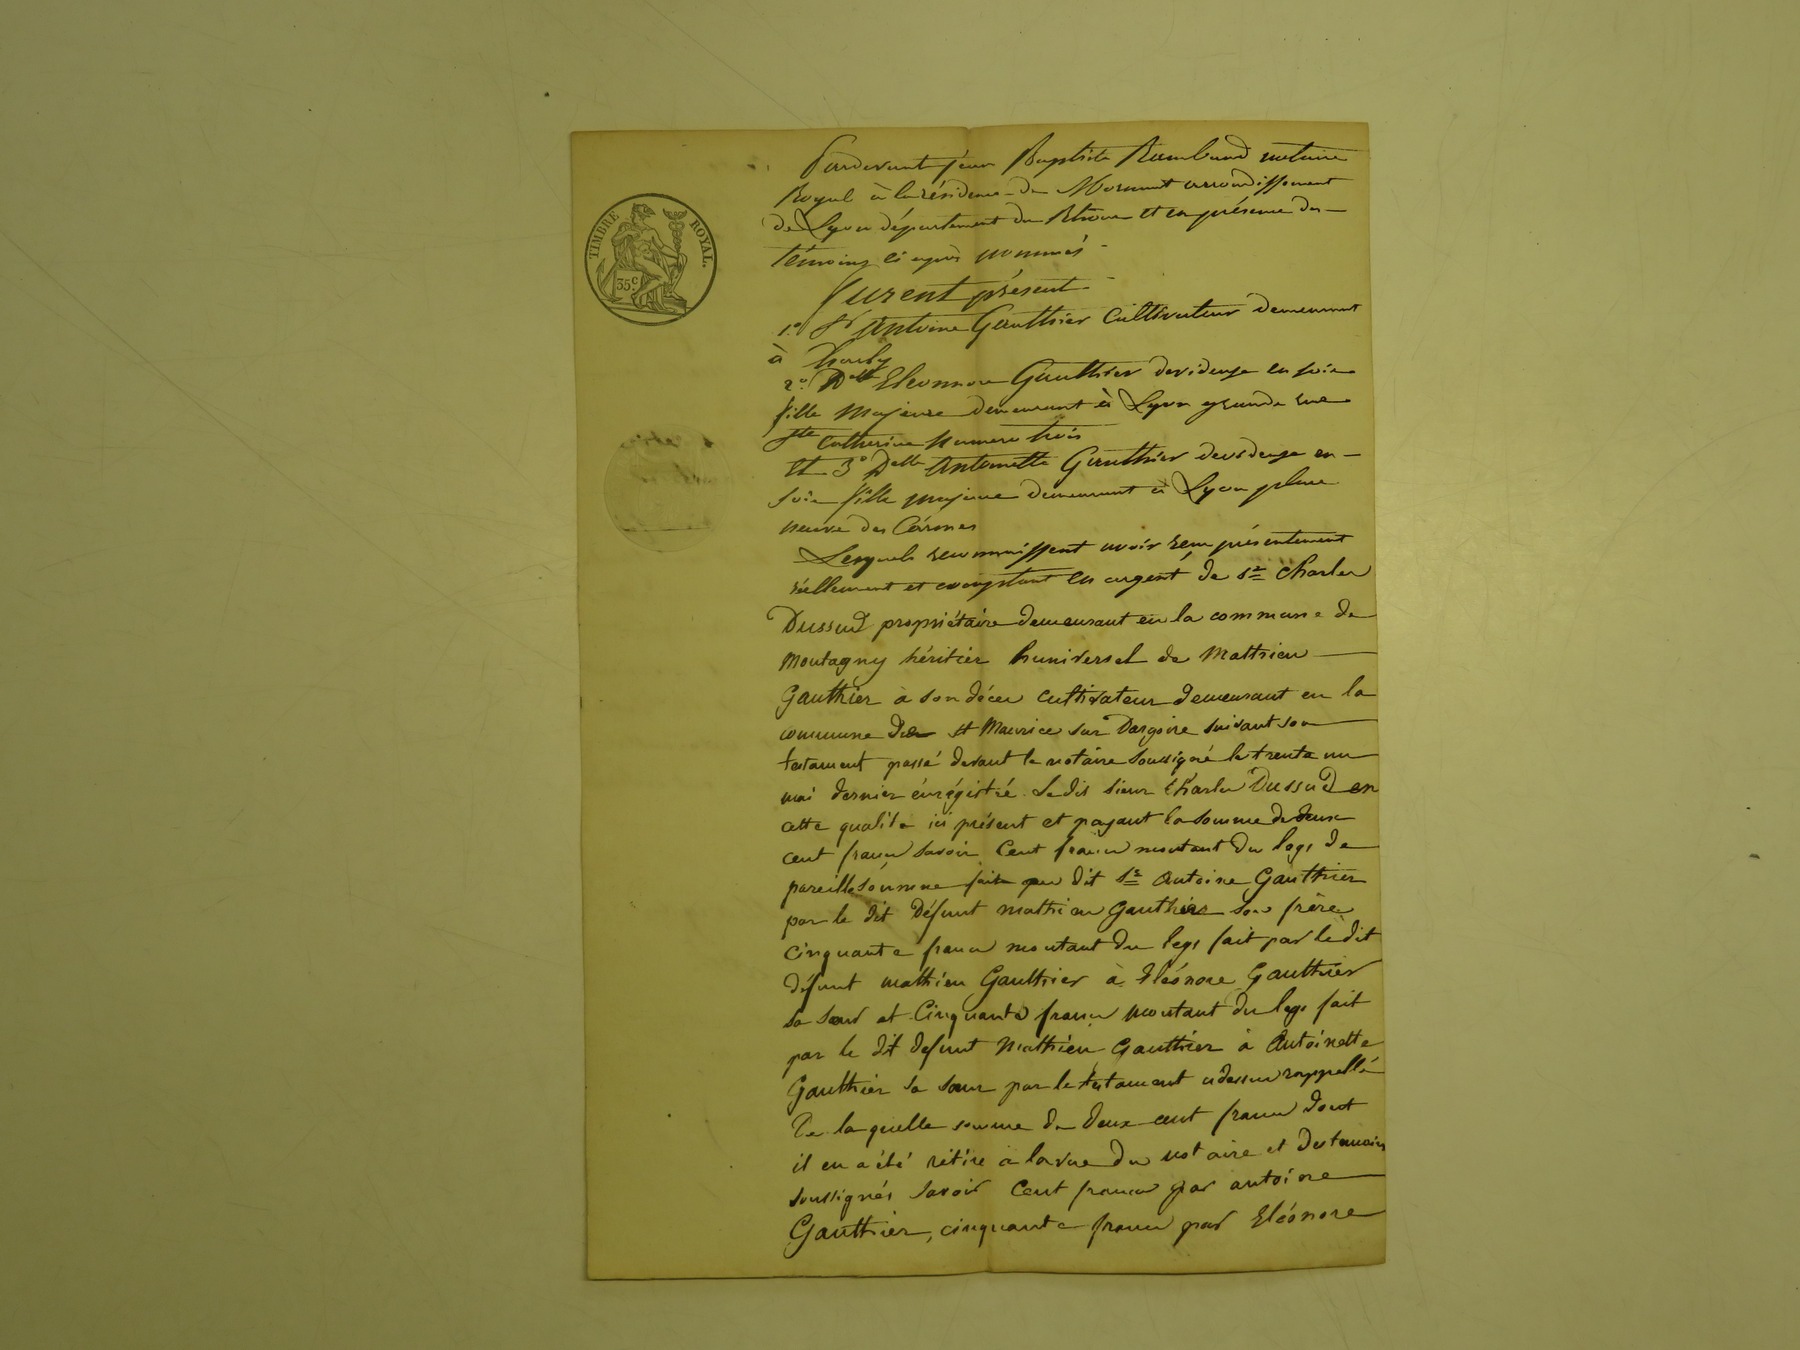 TIMBRE ROYAL.
35c.
Pardevant Jean Baptiste Rambaud notaire
Royal à la résidence de Mornant arrondissement
de Lyon département du Rhône et en présence des
témoins ci après nommés
furent présent
1.o Sr Antoine Gauthier cultivateur demeurant
à
2.o Delle Eleonnore Gauthier devideuse en soie
fille majeure demeurant à Lyon grande rue
Ste Catherine numero trois
Et 3o Delle Antoinette Gauthier devideuse en
soie fille majeure demeurant à Lyon place
neuve des Carmes
Lesquels reconnaissent avoir reçu présentement
réellement et comptant en argent de Sr Charles
Dussud propriétaire demeurant en la commune de
Montagny héritier huniversel de Matthieu
Gauthier à son décès cultivateur demeurant en la
commune de St Maurice sur Dargoire suivant son
testament passé devant le notaire soussigné le trente un
mai dernier enrégistré. Le dit sieur Charles Dussud en
cette qualité ici présent et payant la somme de deux
cent francs savoir Cent francs montant du legs de
pareille somme fait au dit Sr Antoine Gauthier
par le dit Défunt Mathieu Gauthier son frère
cinquante francs montant du legs fait par le dit
défunt Mathieu Gauthier à Eléonore Gauthier
sa sœur et Cinquante francs montant du legs fait
par le dit defunt Mathieu Gauthier à Antoinette
Gauthier sa sœur par le testament cidessus rappellé
De la quelle somme de deux cent francs dont
il en a été rétiré à la vue du notaire et des temoins
soussignés savoir Cent francs par antoine
Gauthier, cinquante francs par Eléonore